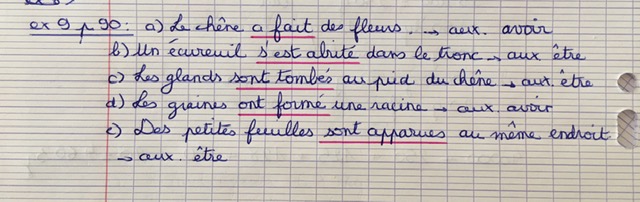 ex 9 p 90: a) Le chêne a fait des fleurs. → aux. avoir
b) Un écureuil s'est abrité dans le tronc → aux être
c) Les glands sont tombés au pied du chêne → aux. être
d) Les graines ont formé une racine → aux. avoir
e) Des petites feuilles sont apparues au même endroit
→ aux. être